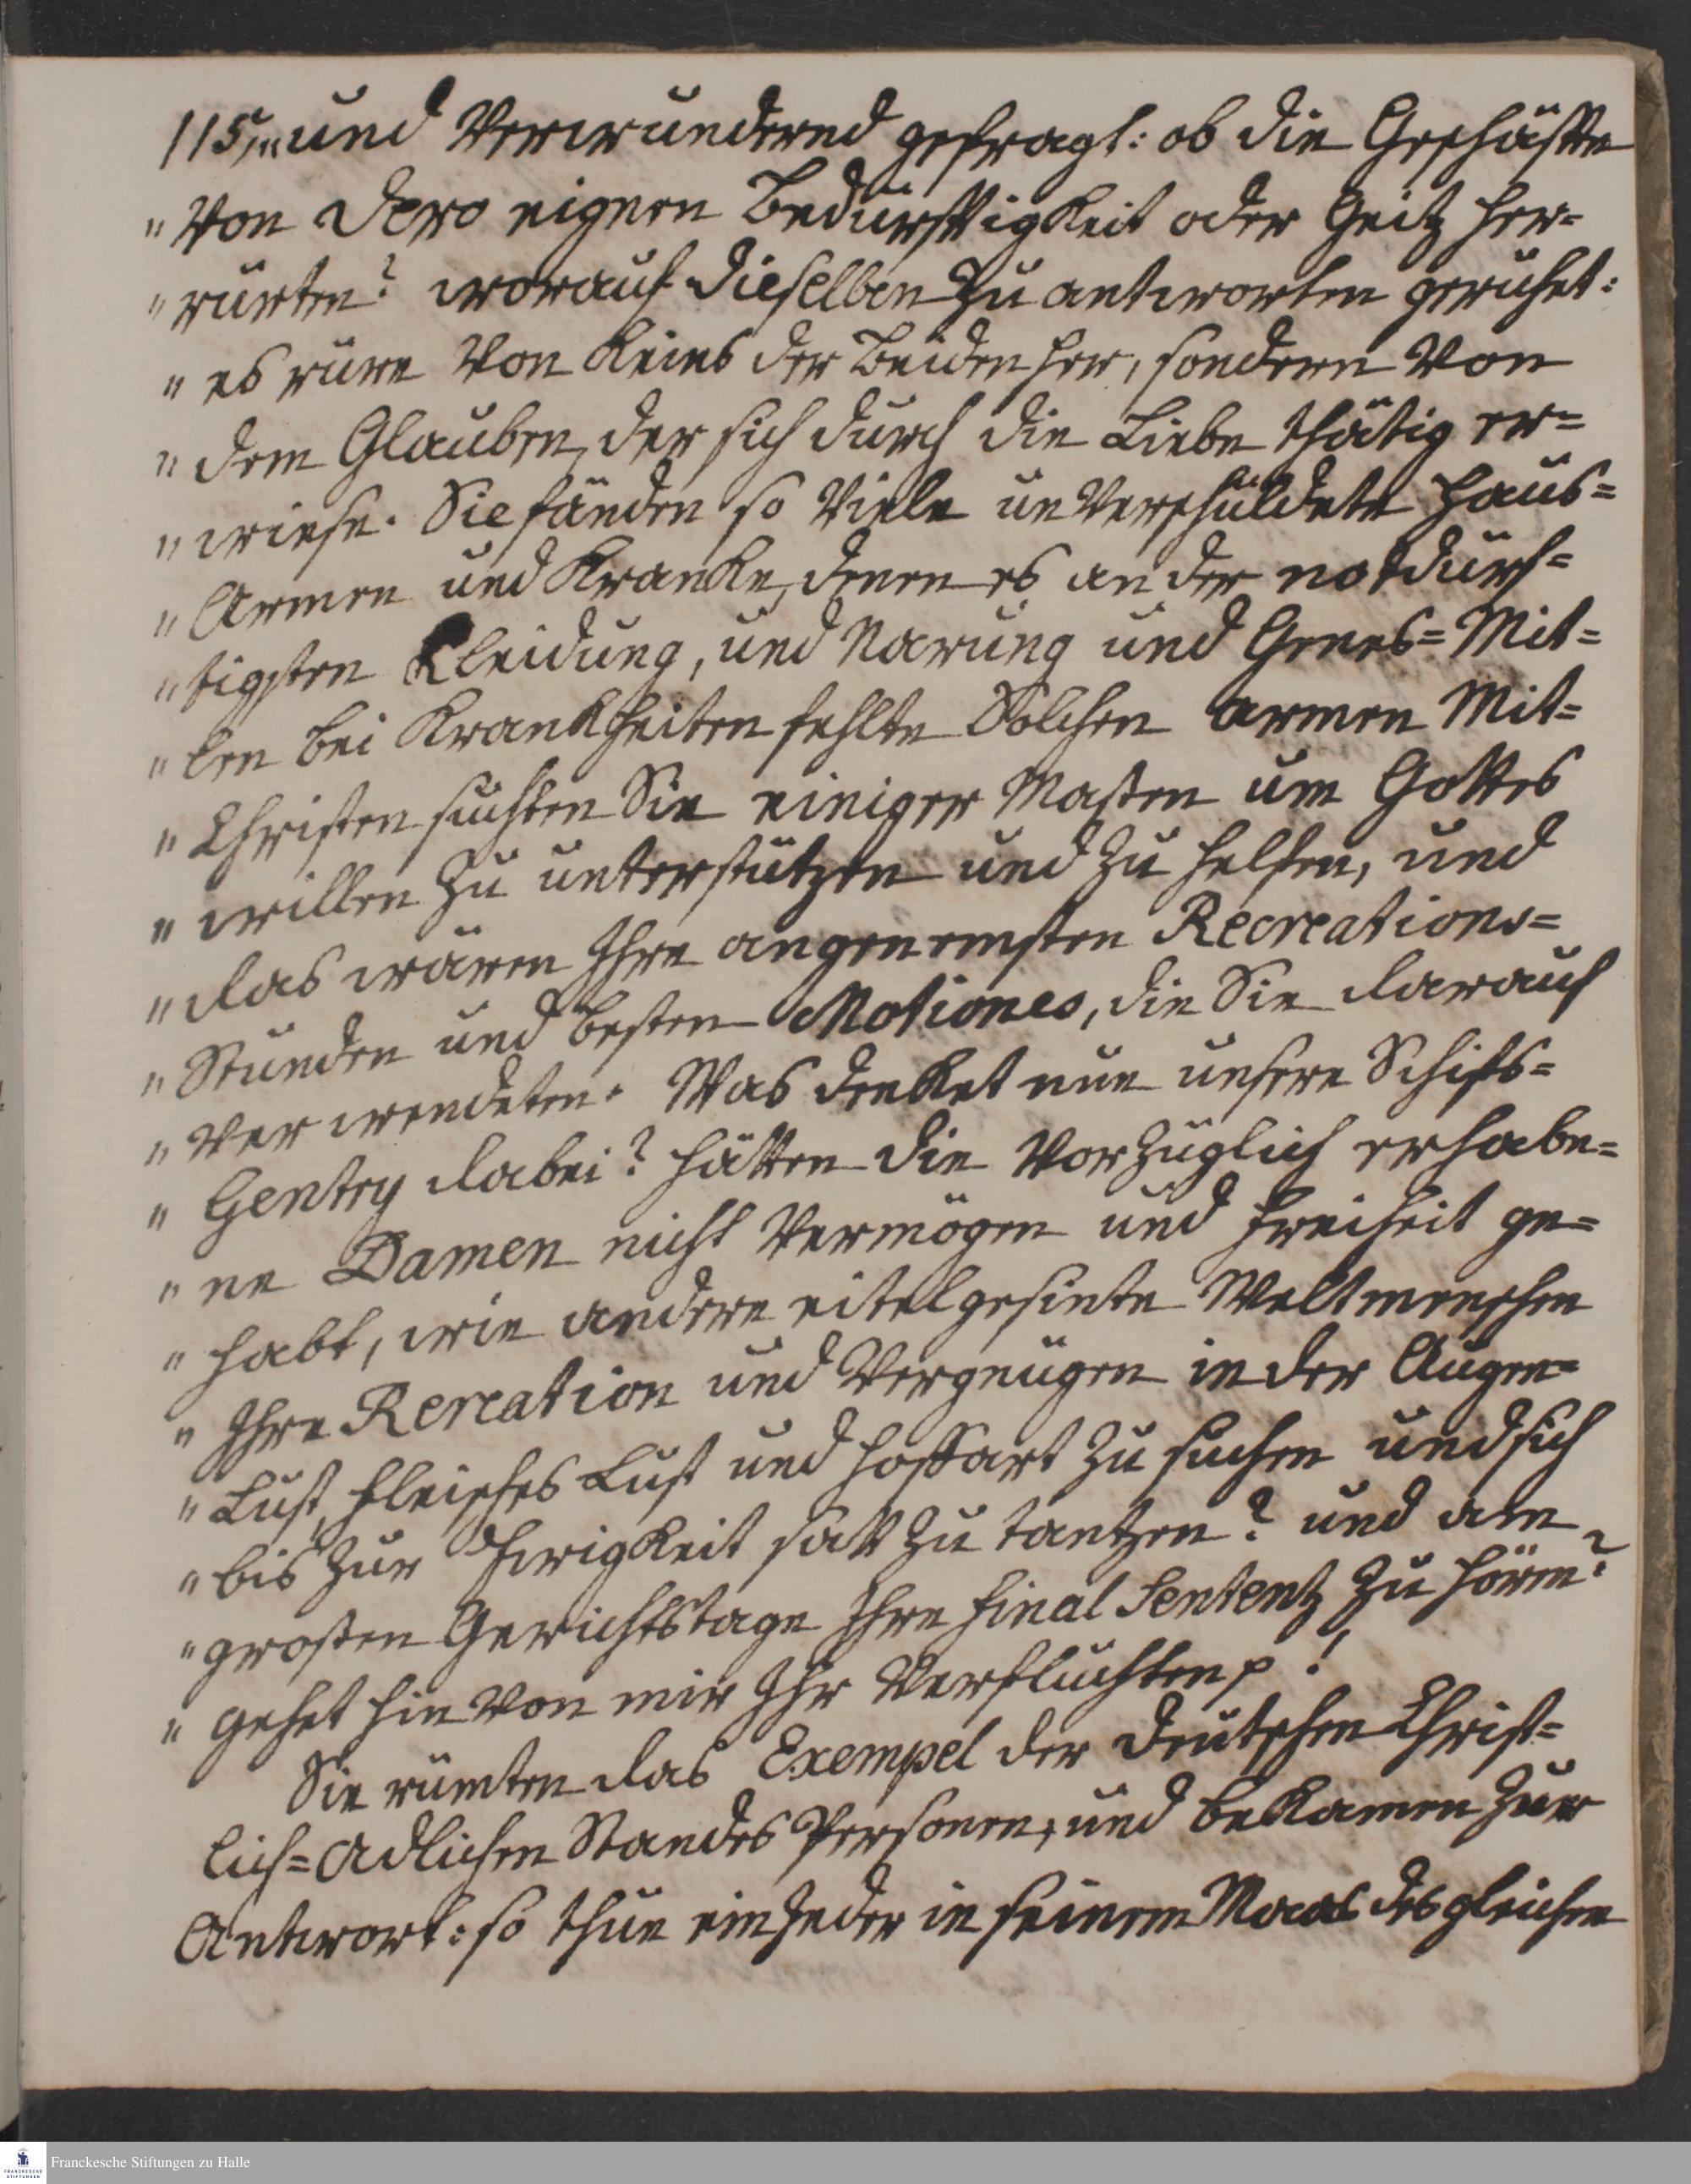 115, „und Verwundernd gefragt: ob die Geschäfte
„ Von dero eignen Bedürfftigkeit oder Geitz her=
„ rürten? worauf dieselben zu antworten geruhet:
„ es rüre Von keines der Beiden her, sondern Von
„ dem Glauben, der sich durch die Liebe thätig er=
„ wiese. Sie fänden so Viele unVerschuldete Haus=
„ Armen und Kranke, denen es an der notdürf=
„ tigsten Kleidung, und Narung und Genes=Mit=
„ len bei Krankheiten fehlte Solchen armen Mit=
„ Christen suchten Sie einiger Masten um Gottes
„ willen zu unterstützen und zu helfen, und
„ das wären Ihre angenemsten Recreations=
„ Stunden und besten Motiones, die Sie darauf
„ Verwendeten. Was denket nun unsere Schifs=
„ Gentry dabei? hätten die Vorzüglich erhabe=
„ ne Damen nicht Vermögen und Freiheit ge=
„ habt, wie andere eitelgesinte Weltmenschen
„ Ihre Rereation und Vergnügen in der Augen=
„ Lust, Fleisches Lust und Hoffart zu suchen und sich
„ bis zur Ewigkeit satt zu tantzen? und am
„ grosten Gerichtstage Ihre final Sententz zu hören?
„ gehet hin Von mir Ihr Verfluchten p!
Sie rümten das Exempel der deutschen Christ=
lich=Adlichen Standes Personen, und bekamen zur
Antwort: so thue ein Jeder in seinem Maas desgleichen
Franckesche Stiftungen zu Halle
FRANCKESCHE
STIFTUNGEN